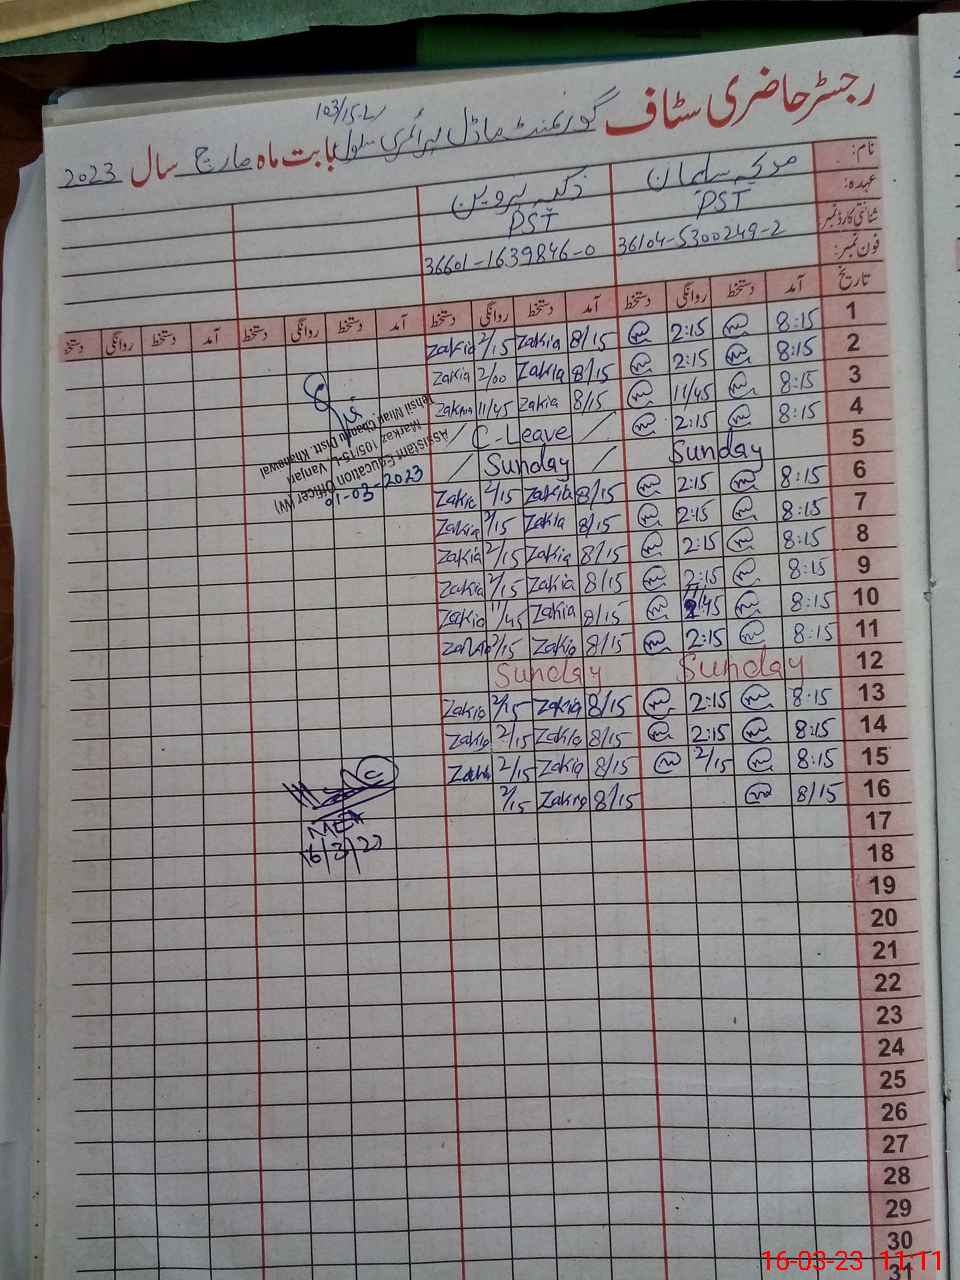 رجسٹر حاضری سٹاف گورنمنٹ ماڈل پرائمری سکول 103/15-L بابت ماہ مارچ سال 2023
نام: سلمان ذکیہ پروین
عہدہ: PST PST
شناختی کارڈ نمبر 36104-5300249-2 36601-1639846-0
فون نمبر:
تاریخ آمد دستخط روانگی دستخط آمد دستخط روانگی دستخط آمد دستخط روانگی دستخط آمد دستخط روانگی دستخط
1 8:15 2:15 8/15 Zakia 2/15 Zakia
2 8:15 2:15 8/15 Zakia 2/00 Zakia
3 8:15 11/45 8/15 Zakia 11/45 Zakia
4 8:15 2:15 / C-Leave /
5 Sunday / Sunday /
6 8:15 2:15 8/15 Zakia 2/15 Zakia
7 8:15 2:15 8/15 Zakia 2/15 Zakia
8 8:15 2:15 8/15 Zakia 2/15 Zakia
9 8:15 2:15 8/15 Zakia 2/15 Zakia
10 8:15 8/15 Zakia 11/45 Zakia
11 8:15 2:15 8/15 Zakia 2/15 Zakia
12 Sunday Sunday
13 8:15 2:15 8/15 Zakia 2/15 Zakia
14 8:15 2:15 8/15 Zakia 2/15 Zakia
15 8:15 2/15 8/15 Zakia 2/15 Zakia
16 8/15 8/15 Zakia 2/15
17
18
19
20
21
22
23
24
25
26
27
28
29
30
31
01-03-2023
Assistant Education Officer (W)
Markaz 105/15-L Vanjari
Tehsil Mian Channu Distt. Khanewal
MEA
16/3/23
16-03-23 11:11